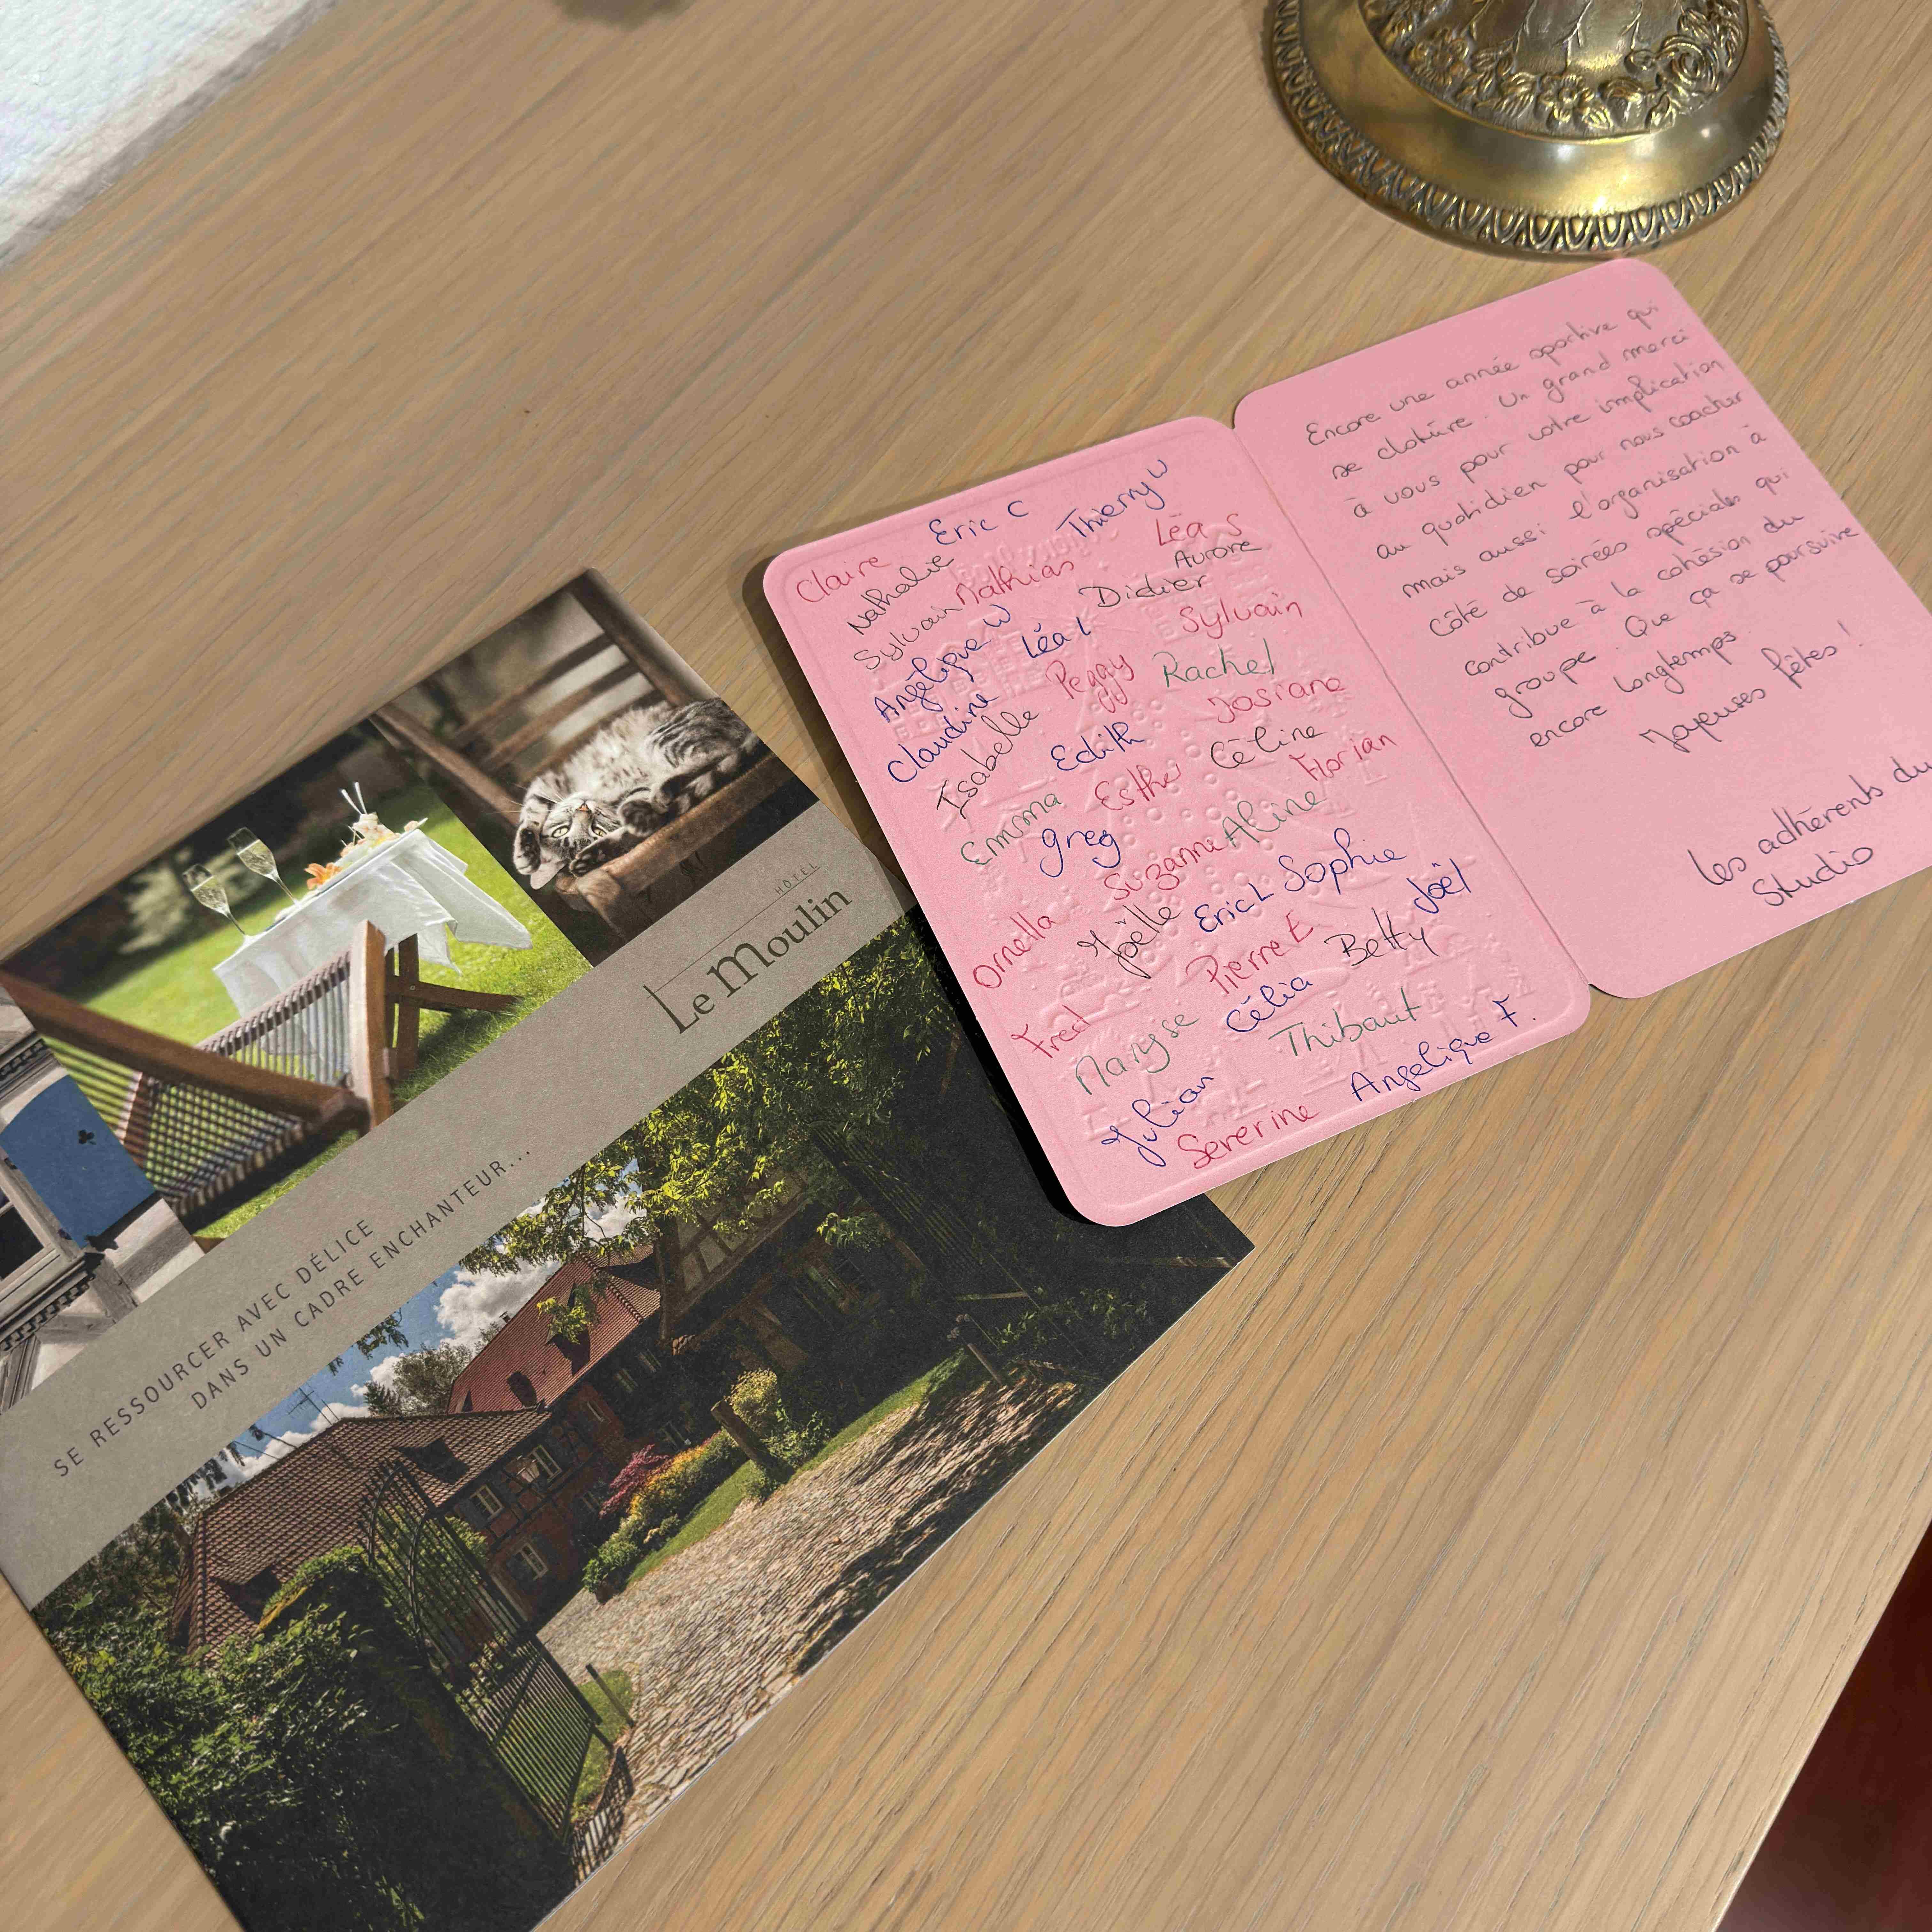 HÔTEL
Le Moulin
SE RESSOURCER AVEC DÉLICE
DANS UN CADRE ENCHANTEUR...
Claire
Eric C
Thierry W
Nathalie
Mathias
Léa S
Aurore
Sylvain
Didier
Angélique W
Léa L
Sylvain
Claudine
Peggy
Rachel
Isabelle
Edith
Josiane
Emma
Esther
Céline
Greg
Aline
Florian
Suzanne
Ornella
Joëlle
Eric L
Sophie
Joël
Pierre E
Betty
Fred
Maryse
Célia
Thibaut
Julian
Angelique F.
Severine
Encore une année sportive qui
se clotûre. Un grand merci
à vous pour votre implication
au quotidien pour nous coacher
mais aussi l'organisation à
côté de soirées spéciales qui
contribue à la cohésion du
groupe. Que ça se poursuive
encore longtemps.
Joyeuses fêtes !
Les adhérents du
Studio